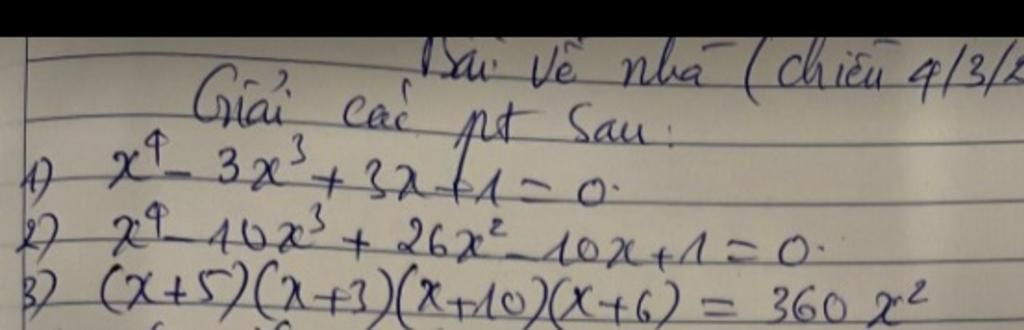 Bài về nhà (chiều 4/3/2
Giải các pt sau:
1) x⁴ - 3x³ + 3x + 1 = 0.
2) x⁴ - 10x³ + 26x² - 10x + 1 = 0.
3) (x+5)(x+3)(x+10)(x+6) = 360 x²